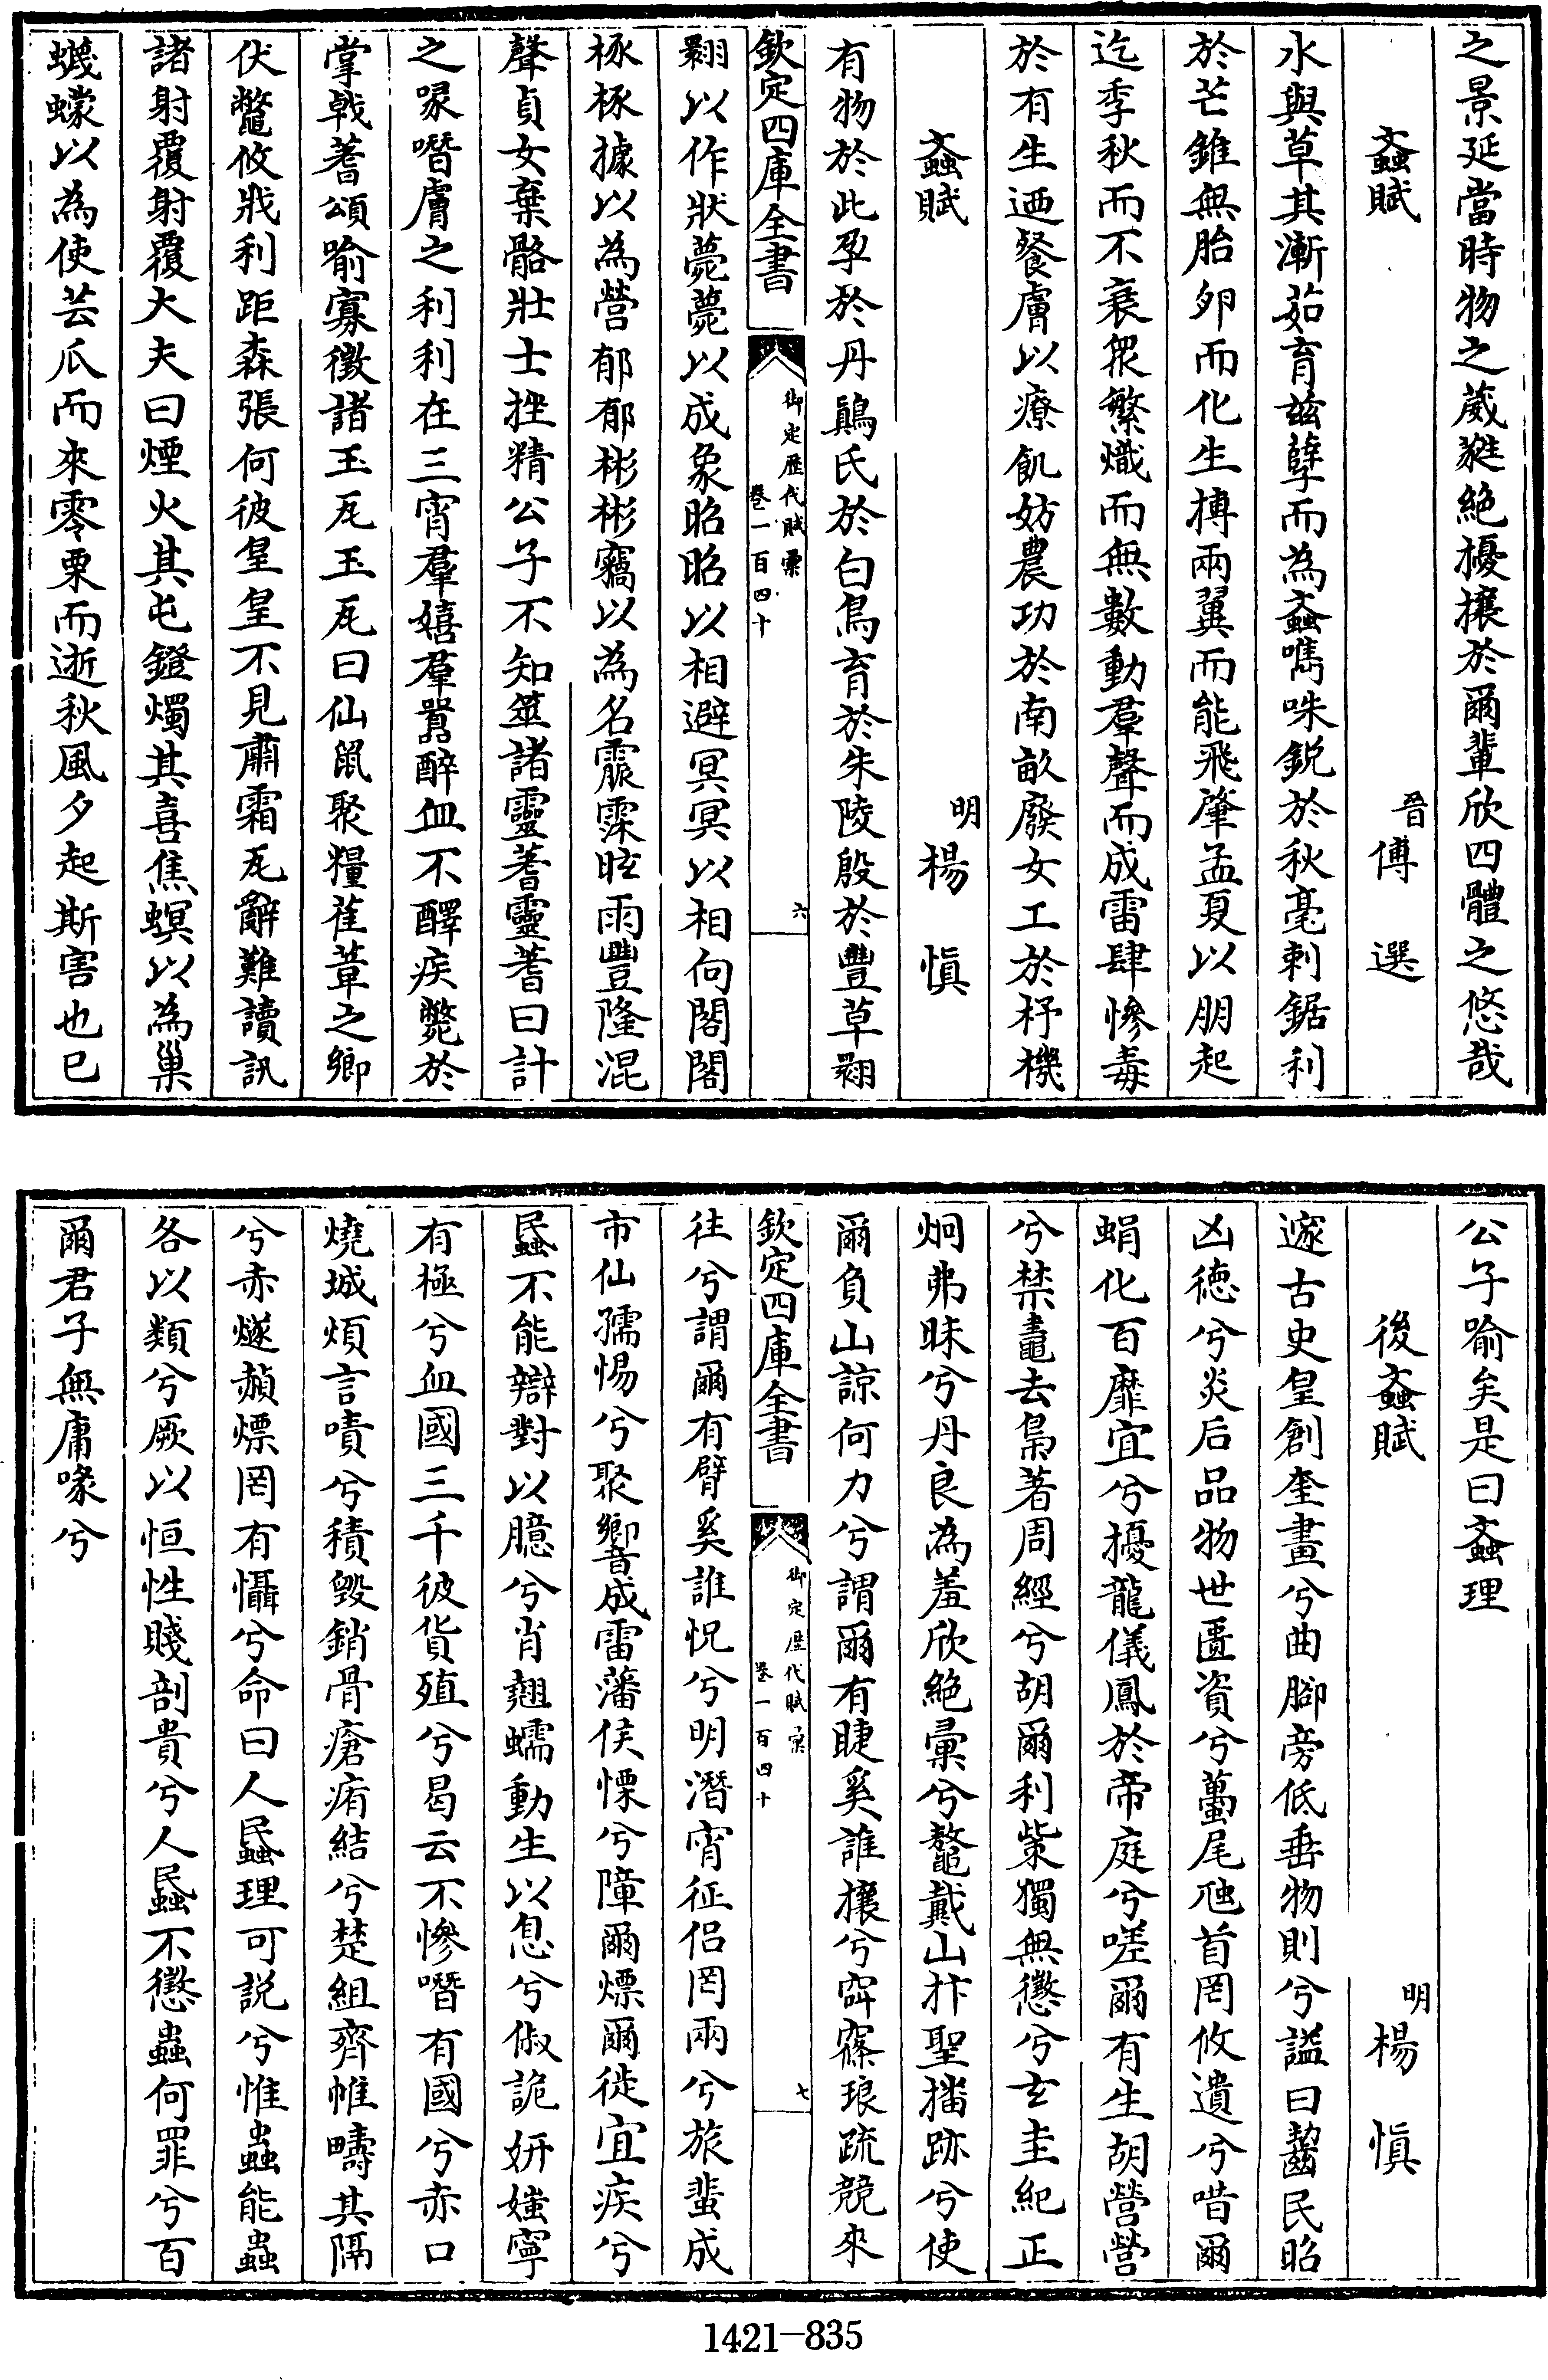 之景延當時物之葳蕤絶擾攘於爾輩欣四體之悠哉
蚉賦
晉傅選
水與草其漸茹育兹孽而為蚉嘴咮鋭於秋毫刺鋸利
於芒錐無胎卵而化生摶兩翼而能飛肇孟夏以朋起
迄季秋而不衰衆繁熾而無數動羣聲而成雷肆慘毒
於有生迺餐膚以療飢妨農功於南畝廢女工於杼機
蚉賦
明楊慎
有物於此孕於丹鶉氏於白鳥育於朱陵殷於豐草翾
欽定四庫全書
御定歷代賦彙
卷一百四十
六
翾以作狀薨薨以成象昭昭以相避冥冥以相向閣閣
椓椓據以為營郁郁彬彬竊以為名霢霂眩雨豐隆混
聲貞女棄骼壯士挫精公子不知筮諸靈蓍靈蓍曰計
之喙噆膚之利利在三宵羣嬉羣嚣醉血不醳疾斃於
掌戟蓍頌喻寡徵諸玉瓦玉瓦曰仙鼠聚糧萑葦之鄉
伏鼈攸戕利距森張何彼皇皇不見肅霜瓦辭難讀訊
諸射覆射覆大夫曰煙火其屯鐙燭其喜焦螟以為巢
蠛蠓以為使芸瓜而來零栗而逝秋風夕起斯害也已
公子喻矣是曰蚉理
後蚉賦
明楊慎
邃古史皇創奎畫兮曲腳旁低垂物則兮謚曰齧民昭
凶徳兮炎后品物世匱資兮蠆尾虺首罔攸遺兮喈爾
蜎化百靡宜兮擾龍儀鳳於帝庭兮嗟爾有生胡營營
兮禁鼃去梟著周經兮胡爾利柴獨無懲兮玄圭紀正
炯弗昧兮丹良為羞欣絶彙兮鼇戴山抃聖擂跡兮使
爾負山諒何力兮謂爾有睫奚誰攘兮窣窱琅疏競來
欽定四庫全書
御定歷代賦彙
卷一百四十
七
往兮謂爾有臂奚誰怳兮明潛宵征侣罔兩兮旅蜚成
市仙孺惕兮聚嚮成雷藩侯慄兮障爾熛爾徙宜疾兮
蟁不能辯對以臆兮肖翹蠕動生以息兮俶詭妍媸寧
有極兮血國三千彼貨殖兮曷云不慘噆有國兮赤口
燒城煩言嘖兮積毀銷骨瘡痏結兮楚組齊帷疇其隔
兮赤燧赬熛罔有懾兮命曰人蟁理可説兮惟蟲能蟲
各以類兮厥以恒性賤剖貴兮人蟁不懲蟲何罪兮百
爾君子無庸喙兮
1421-835